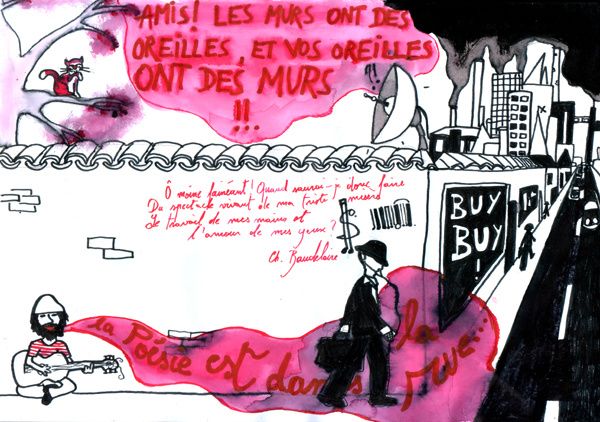 AMIS! LES MURS ONT DES
OREILLES, ET VOS OREILLES
ONT DES MURS
!!.
!!
Ô moine fainéant! Quand saurai-je donc faire
Du spectacle vivant de ma triste misère
Le travail de mes mains et
l'amour de mes yeux?
Ch. Baudelaire
$
BUY
BUY
!
la Poésie est dans la rue...